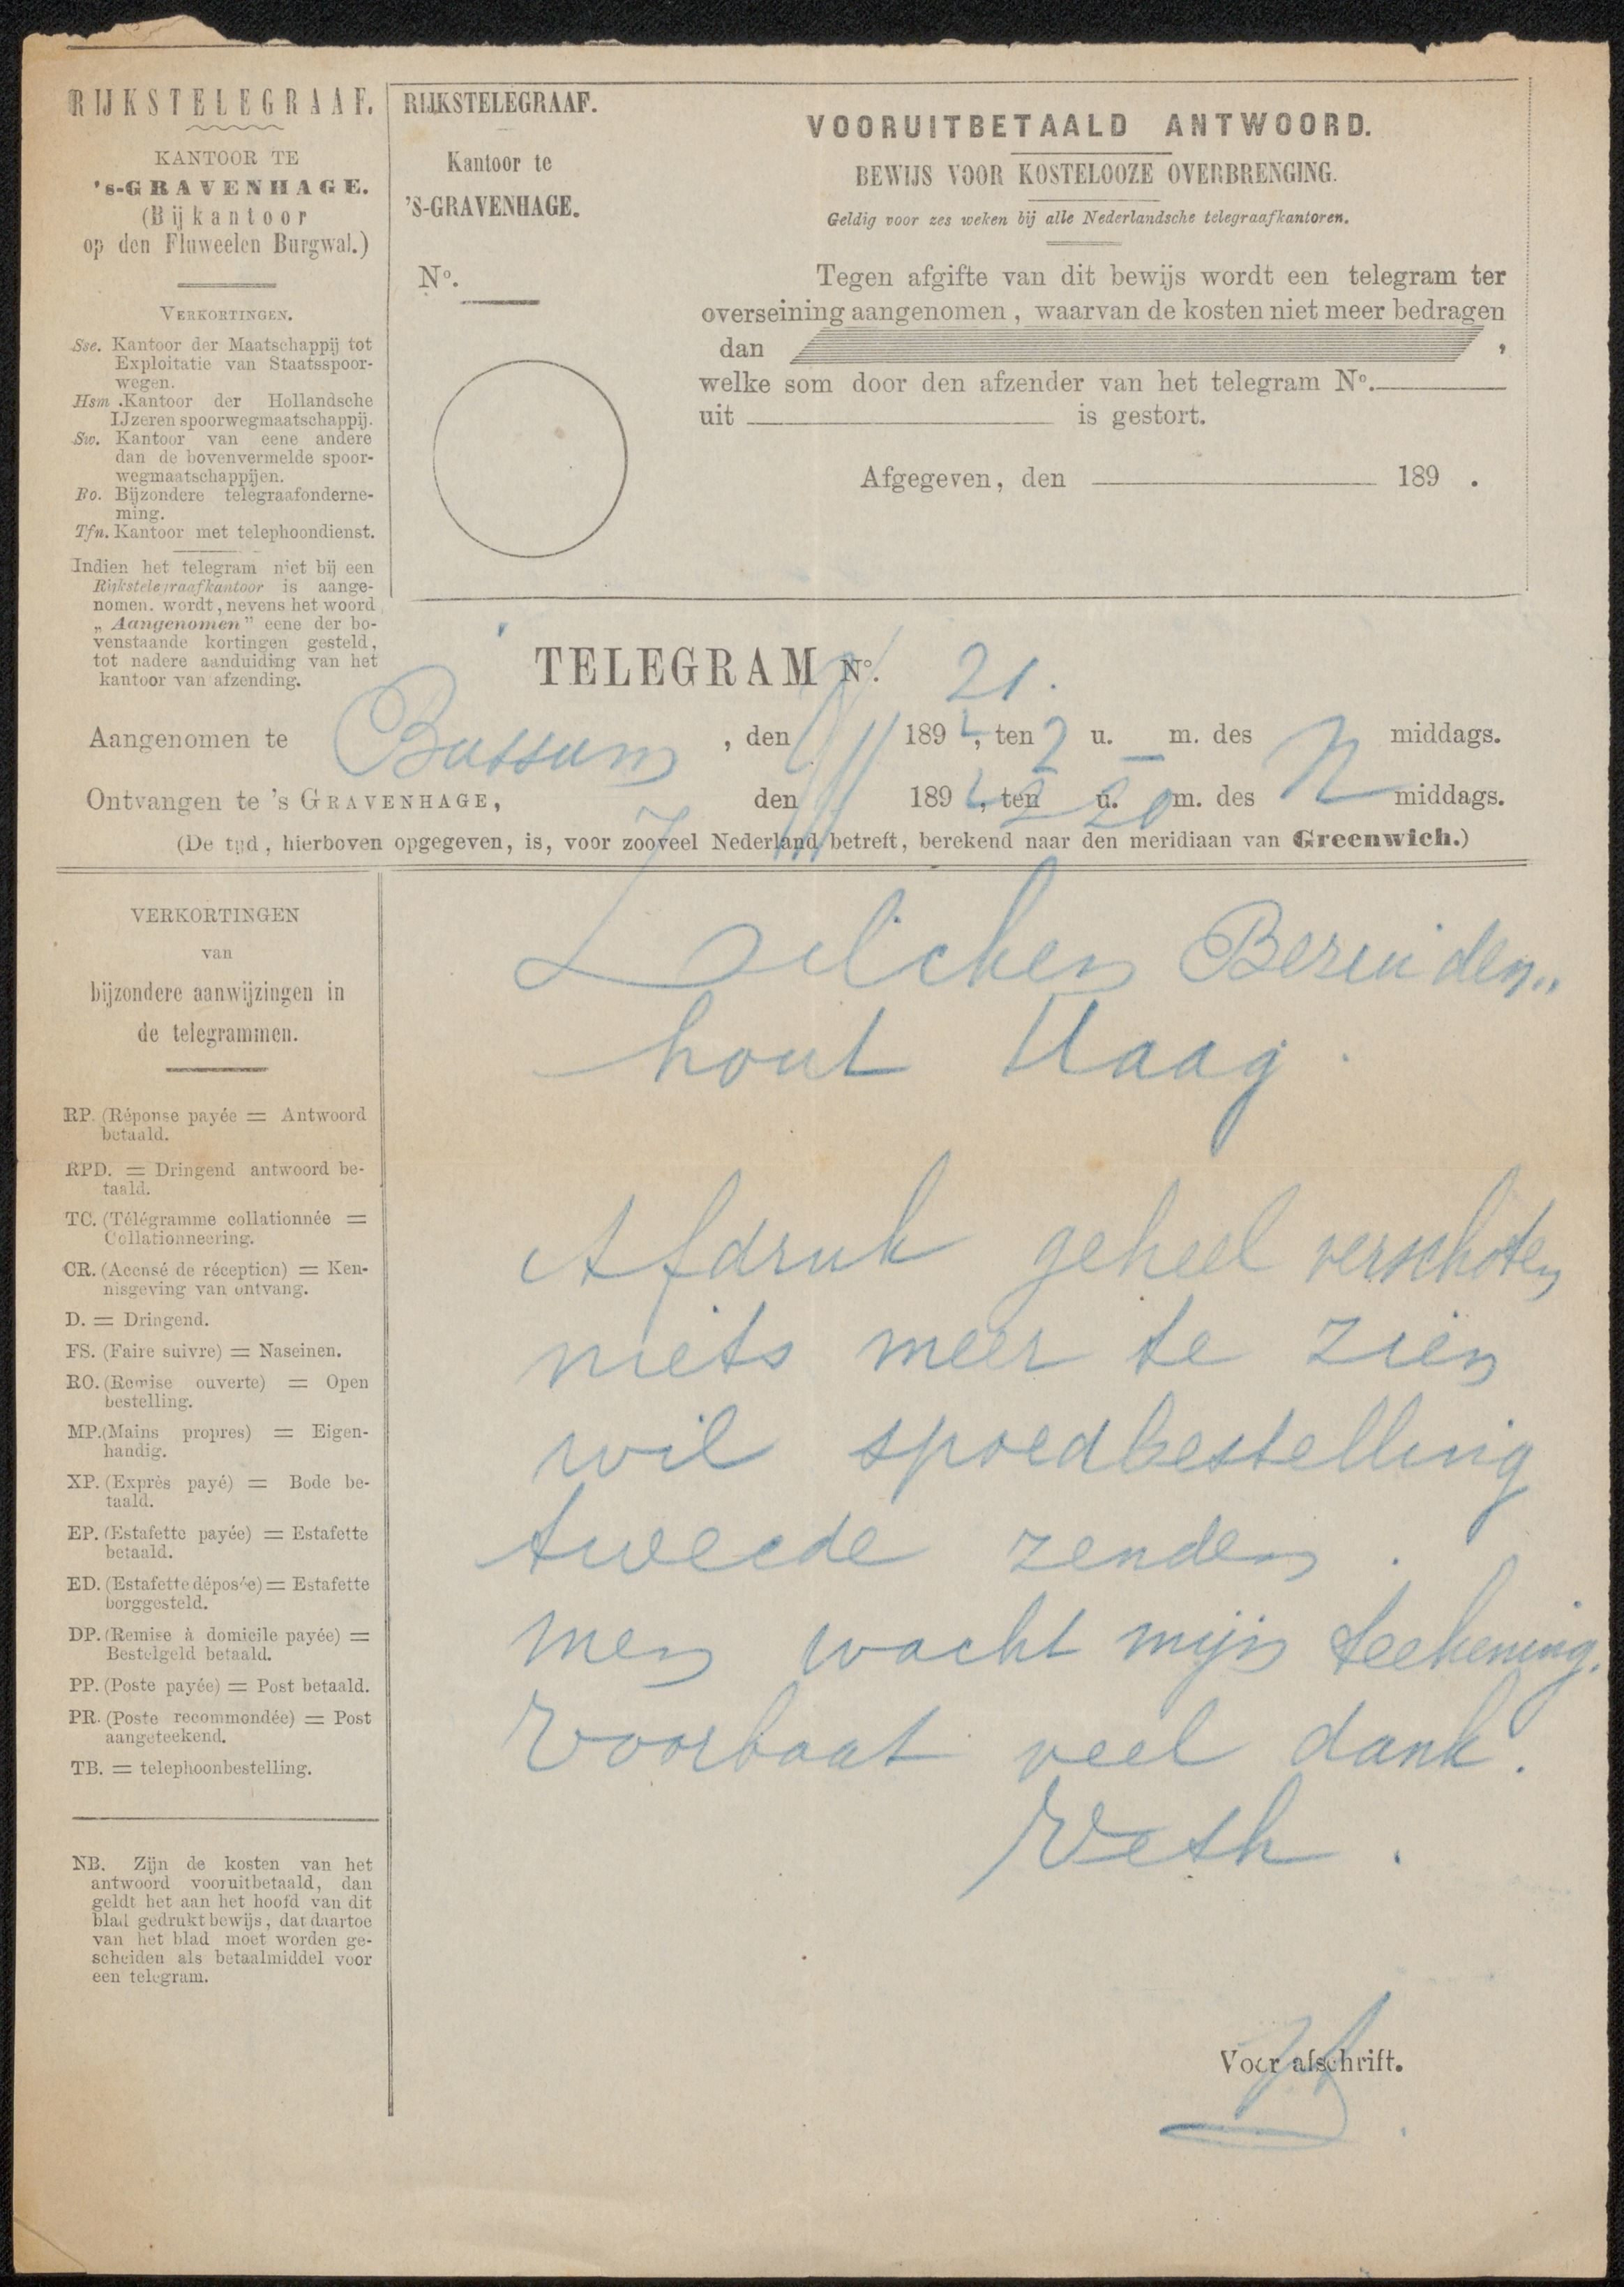 RIJKSTELEGRAAF.
KANTOOR TE
's-GRAVENHAGE.
(Bijkantoor
op den Fluweelen Burgwal.)
VERKORTINGEN.
Sse. Kantoor der Maatschappij tot
Exploitatie van Staatsspoor-
wegen.
Hsm. Kantoor der Hollandsche
IJzeren spoorwegmaatschappij.
Sw. Kantoor van eene andere
dan de bovenvermelde spoor-
wegmaatschappijen.
Bo. Bijzondere telegraafonderne-
ming.
Tfn. Kantoor met telephoondienst.
Indien het telegram niet bij een
Rijkstelegraafkantoor is aange-
nomen, wordt, nevens het woord
„Aangenomen" eene der bo-
venstaande kortingen gesteld,
tot nadere aanduiding van het
kantoor van afzending.
RIJKSTELEGRAAF.
Kantoor te
'S-GRAVENHAGE.
No.
VOORUITBETAALD ANTWOORD.
BEWIJS VOOR KOSTELOOZE OVERBRENGING.
Geldig voor zes weken bij alle Nederlandsche telegraafkantoren.
Tegen afgifte van dit bewijs wordt een telegram ter
overseining aangenomen, waarvan de kosten niet meer bedragen
dan ,
welke som door den afzender van het telegram No.
uit is gestort.
Afgegeven, den 189 .
TELEGRAM No. 21.
Aangenomen te Bussum, den 189 , ten 2 u. — m. des N middags.
Ontvangen te 's GRAVENHAGE, den 189 , ten 2 u. 20 m. des N middags.
(De tijd, hierboven opgegeven, is, voor zooveel Nederland betreft, berekend naar den meridiaan van Greenwich.)
VERKORTINGEN
van
bijzondere aanwijzingen in
de telegrammen.
RP. (Réponse payée = Antwoord
betaald.
RPD. = Dringend antwoord be-
taald.
TC. (Télégramme collationnée =
Collationneering.
CR. (Accusé de réception) = Ken-
nisgeving van ontvang.
D. = Dringend.
FS. (Faire suivre) = Naseinen.
RO. (Remise ouverte) = Open
bestelling.
MP. (Mains propres) = Eigen-
handig.
XP. (Exprès payé) = Bode be-
taald.
EP. (Estafette payée) = Estafette
betaald.
ED. (Estafette déposée) = Estafette
borggesteld.
DP. (Remise à domicile payée) =
Bestelgeld betaald.
PP. (Poste payée) = Post betaald.
PR. (Poste recommondée) = Post
aangeteekend.
TB. = telephoonbestelling.
NB. Zijn de kosten van het
antwoord vooruitbetaald, dan
geldt het aan het hoofd van dit
blad gedrukt bewijs, dat daartoe
van het blad moet worden ge-
scheiden als betaalmiddel voor
een telegram.
Zilcken Bezuiden„
hout Haag.
Afdruk geheel verschoten
niets meer te zien
wil spoedbestelling
tweede zenden.
men wacht mijn teekening.
Voorbaat veel dank.
Veth.
Voor afschrift.